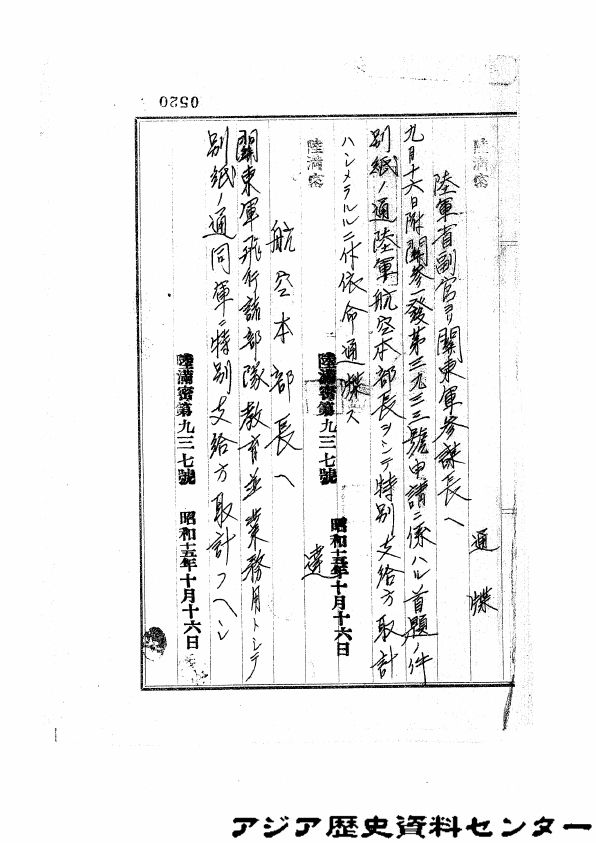 0520
陸満密
通牒
陸軍省副官ヨリ關東軍參謀長ヘ
九月十六日附關參一發第三九三三號申請ニ係ハル首題ノ件
別紙ノ通陸軍航空本部長ヲシテ特別支給方取計
ハシメラルルニ付依命通牒ス
陸満密第九三七號 昭和十五年十月十六日
陸満密
達
航空本部長ヘ
關東軍飛行諸部隊教育並業務用トシテ
別紙ノ通同軍ニ特別支給方取計フヘシ
陸満密第九三七號 昭和十五年十月十六日
アジア歴史資料センター